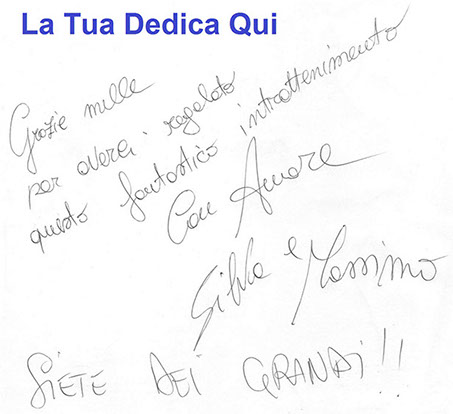 La Tua Dedica Qui
Grazie mille
per averci regalato
questo fantastico intrattenimento
Con Amore
Silvia e Massimo
SIETE DEI GRANDI!!